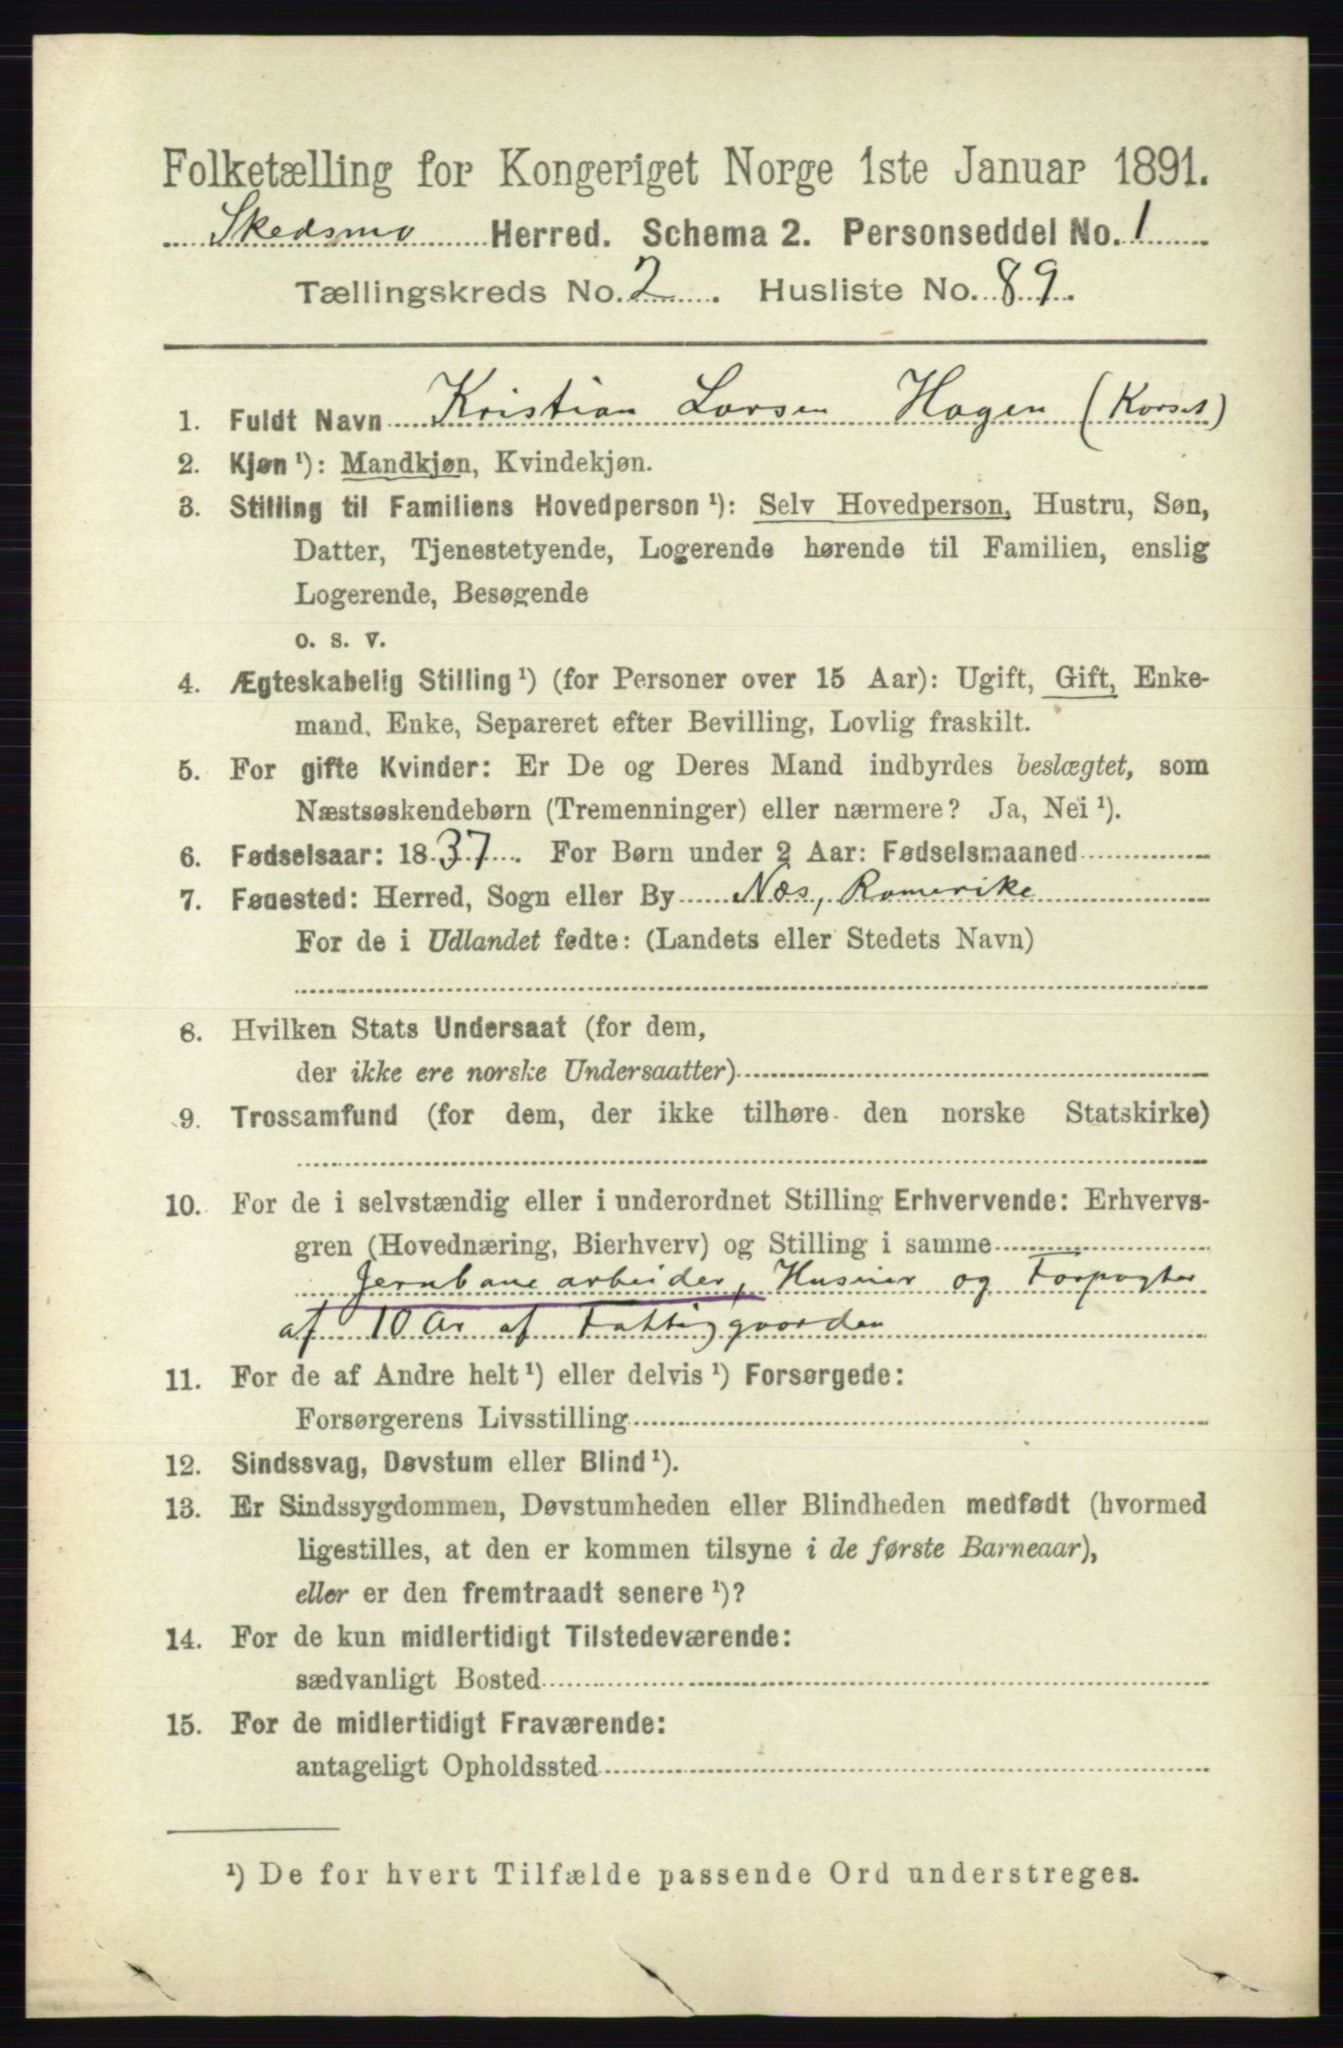 Folketælling for Kongeriget Norge 1ste Januar 1891.
Skedsmo Herred. Schema 2. Personseddel No. 1
Tællingskreds No. 2. Husliste No. 89.
1. Fuldt Navn Kristian Larsen Hagen (Korset)
2. Kjøn ¹): Mandkjøn, Kvindekjøn.
3. Stilling til Familiens Hovedperson ¹): Selv Hovedperson, Hustru, Søn,
Datter, Tjenestetyende, Logerende hørende til Familien, enslig
Logerende, Besøgende
o. s. v.
4. Ægteskabelig Stilling ¹) (for Personer over 15 Aar): Ugift, Gift, Enke-
mand, Enke, Separeret efter Bevilling, Lovlig fraskilt.
5. For gifte Kvinder: Er De og Deres Mand indbyrdes beslægtet, som
Næstsøskendebørn (Tremenninger) eller nærmere? Ja, Nei ¹).
6. Fødselsaar: 1837. For Børn under 2 Aar: Fødselsmaaned
7. Fødested: Herred, Sogn eller By Næs, Romerike
For de i Udlandet fødte: (Landets eller Stedets Navn)
8. Hvilken Stats Undersaat (for dem,
der ikke ere norske Undersaatter)
9. Trossamfund (for dem, der ikke tilhøre den norske Statskirke)
10. For de i selvstændig eller i underordnet Stilling Erhvervende: Erhvervs-
gren (Hovednæring, Bierhverv) og Stilling i samme
Jernbanearbeider, Huseier og Forpagter
af 10 Ar af Fattiggaarden
11. For de af Andre helt ¹) eller delvis ¹) Forsørgede:
Forsørgerens Livsstilling
12. Sindssvag, Døvstum eller Blind ¹).
13. Er Sindssygdommen, Døvstumheden eller Blindheden medfødt (hvormed
ligestilles, at den er kommen tilsyne i de første Barneaar),
eller er den fremtraadt senere ¹)?
14. For de kun midlertidigt Tilstedeværende:
sædvanligt Bosted
15. For de midlertidigt Fraværende:
antageligt Opholdssted
¹) De for hvert Tilfælde passende Ord understreges.